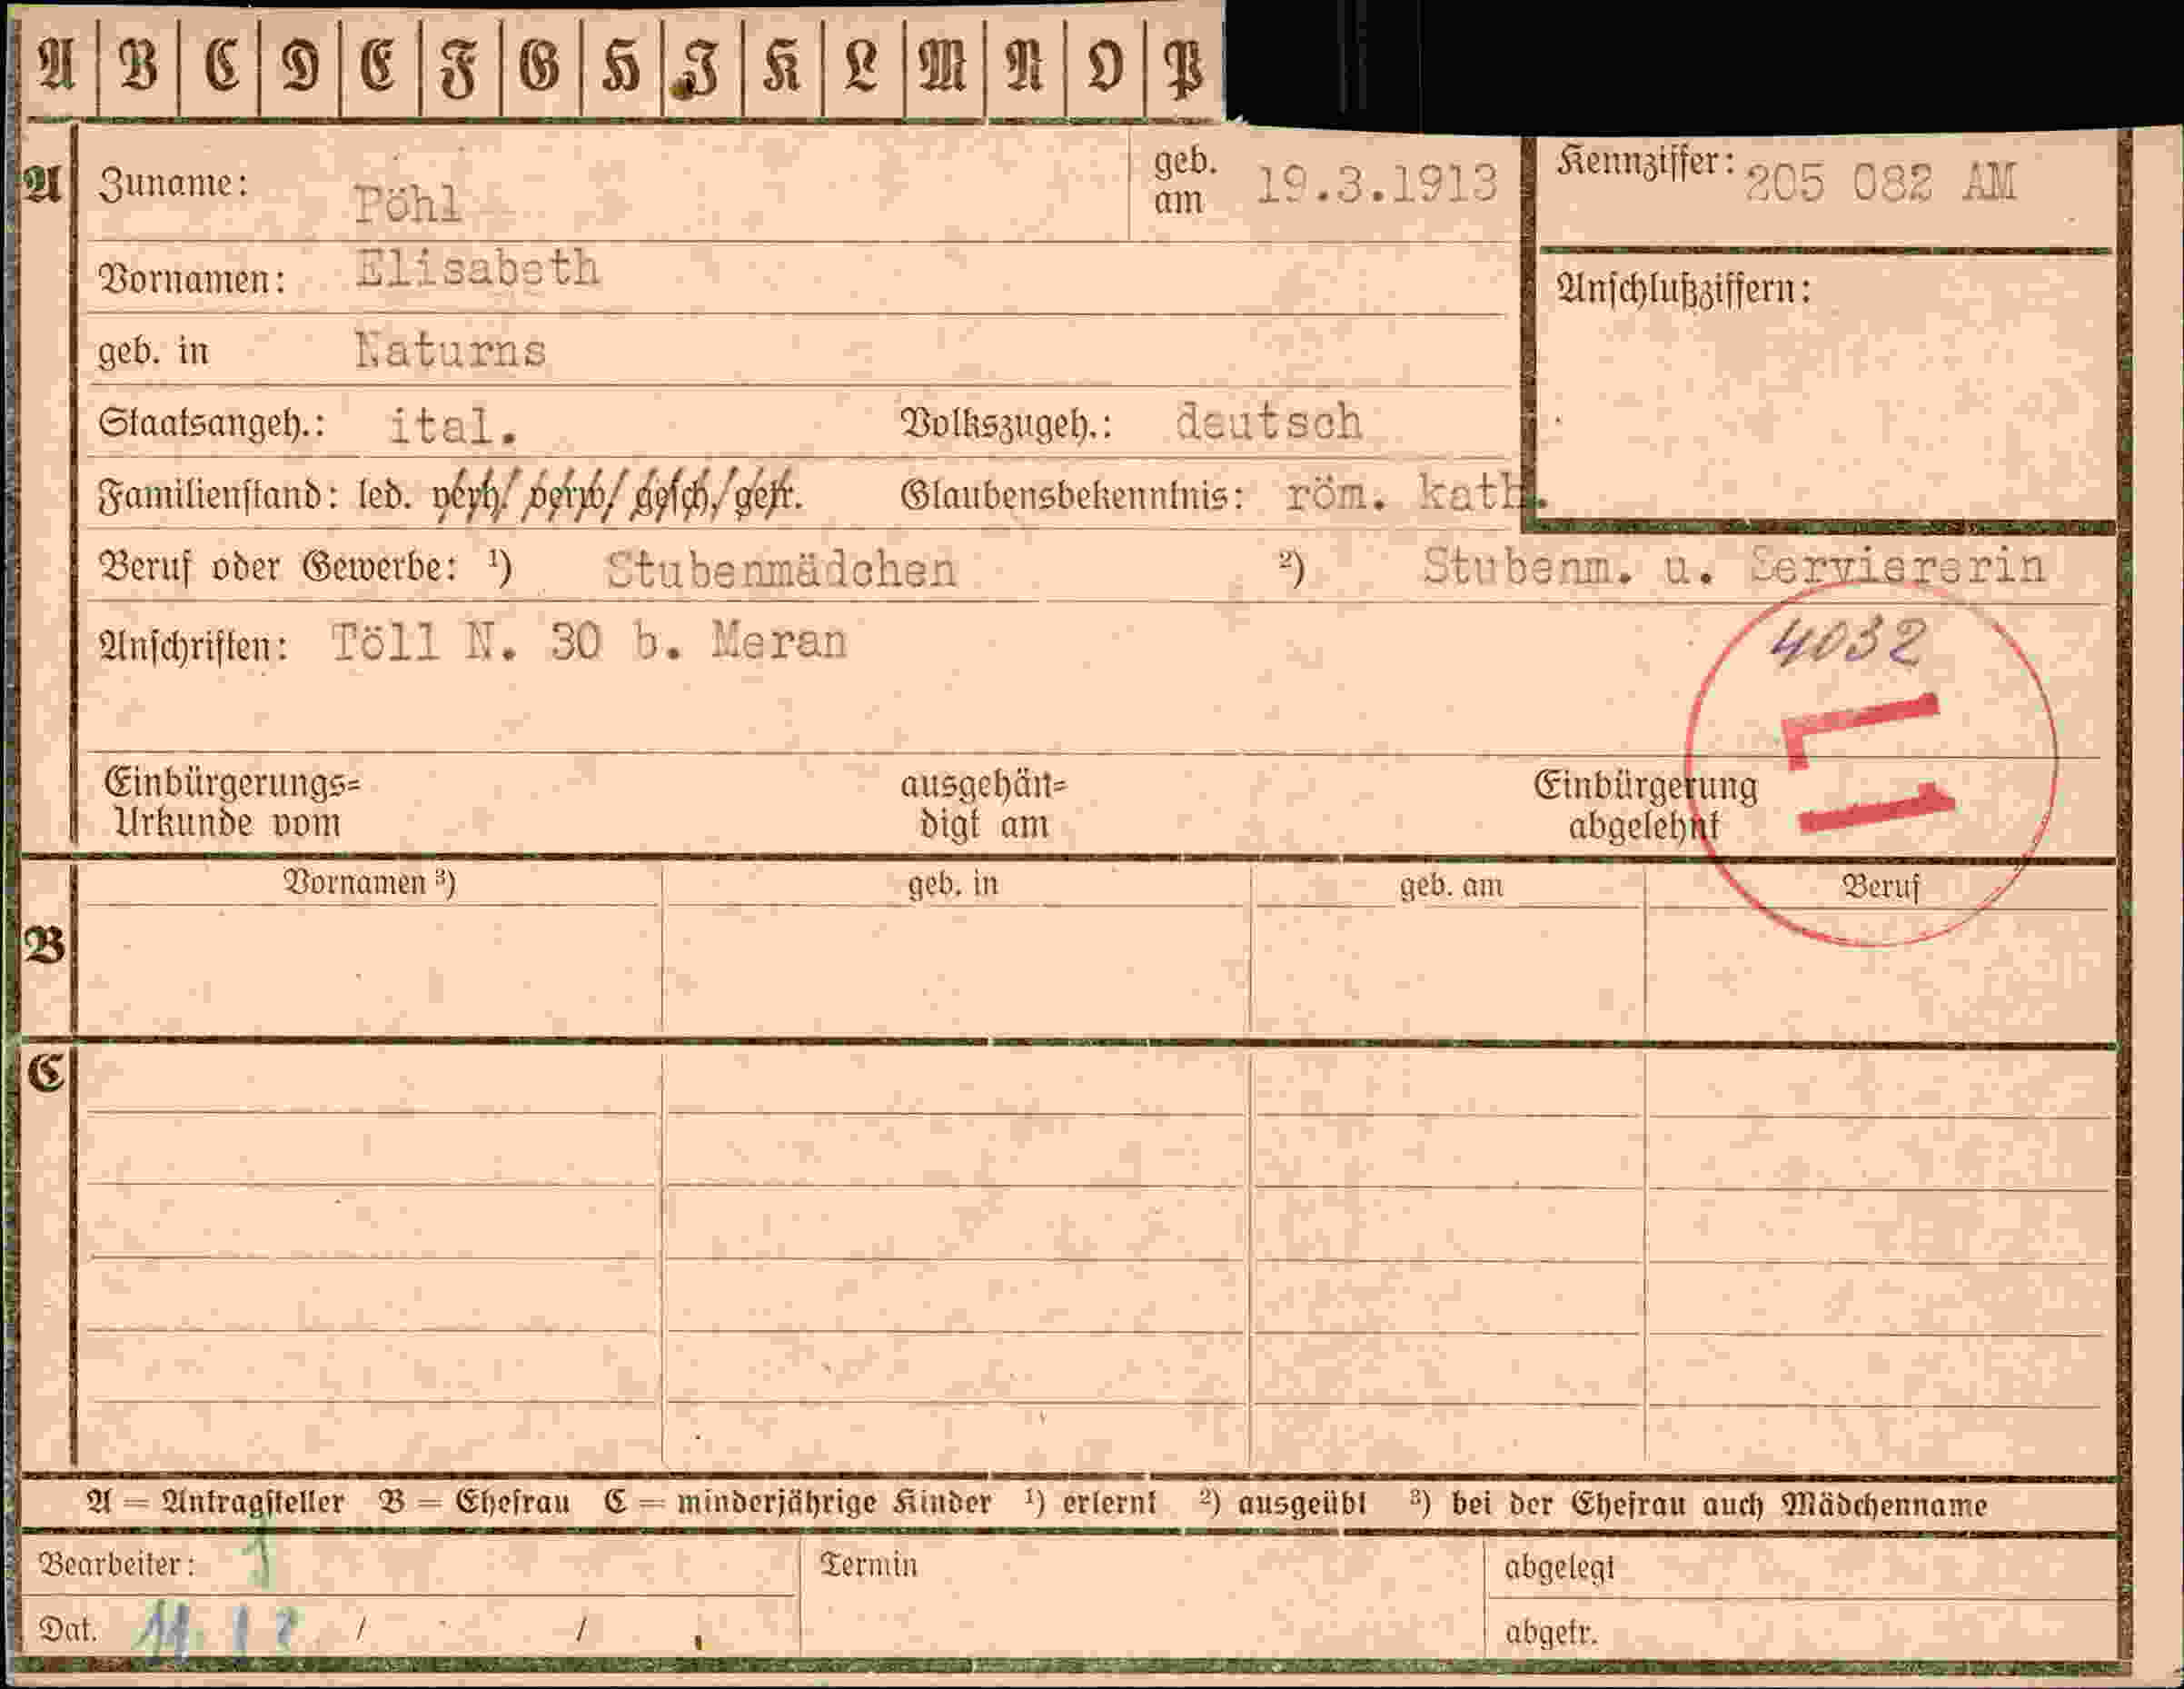 A B C D E F G H J K L M N O P
A Zuname: Pöhl geb. am 19.3.1913 Kennziffer: 205 082 AM
Vornamen: Elisabeth Anschlußziffern:
geb. in Naturns
Staatsangeh.: ital. Volkszugeh.: deutsch
Familienstand: led. verh/ verw/ gesch/ getr. Glaubensbekenntnis: röm. kath.
Beruf oder Gewerbe: ¹) Stubenmädchen ²) Stubenm. u. Serviererin
Anschriften: Töll N. 30 b. Meran
4032
Einbürgerungs= ausgehän= Einbürgerung
Urkunde vom digt am abgelehnt
B Vornamen ³) geb. in geb. am Beruf
C
A = Antragsteller B = Ehefrau C = minderjährige Kinder ¹) erlernt ²) ausgeübt ³) bei der Ehefrau auch Mädchenname
Bearbeiter: Termin abgelegt
Dat. 11. / / abgetr.